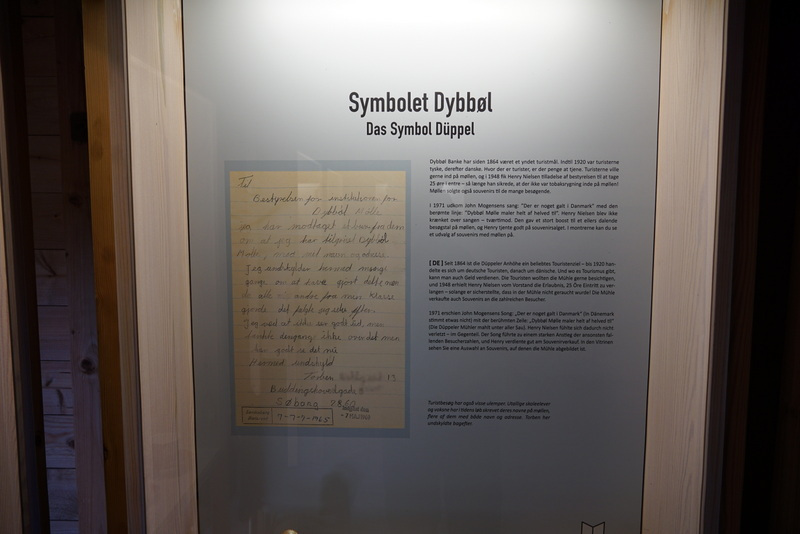 Symbolet Dybbøl
Das Symbol Düppel
Til
Bestyrelsen for institutionen for
Dybbøl Mølle
jeg har modtaget et brev fra dem
om at jeg har tilgriset Dybbøl
Mølle, med mit navn og adresse.
Jeg undskylder hermed mange
gange om at have gjort dette, men
de alle andre fra min klasse
gjorde det fulgte jeg efter
Jeg ved at ikke sen godt
gang ikke men
har gjort se det nu
Hermed undskyld
Torben 13
Søborg
7-7-9-1965
Dybbøl Banke har siden 1864 været et yndet turistmål. Indtil 1920 var turisterne
tyske, derefter danske. Hvor der er turister, er der penge at tjene. Turisterne ville
gerne ind på møllen, og i 1948 fik Henry Nielsen tilladelse af bestyrelsen til at tage
25 øre i entre – så længe han sikrede, at der ikke var tobaksrygning inde på møllen!
Mølle - solgte også souvenirs til de mange besøgende.
I 1971 udkom John Mogensens sang: "Der er noget galt i Danmark" med den
berømte linje: "Dybbøl Mølle maler helt af helved til". Henry Nielsen blev ikke
krænket over sangen – tværtimod. Den gav et stort boost til et ellers dalende
besøgstal på møllen, og Henry tjente godt på souvenirsalget. I montrerne kan du se
et udvalg af souvenirs med møllen på.
[ DE ] Seit 1864 ist die Düppeler Anhöhe ein beliebtes Touristenziel – bis 1920 han-
delte es sich um deutsche Touristen, danach um dänische. Und wo es Tourismus gibt,
kann man auch Geld verdienen. Die Touristen wollten die Mühle gerne besichtigen,
und 1948 erhielt Henry Nielsen vom Vorstand die Erlaubnis, 25 Öre Eintritt zu ver-
langen – solange er sicherstellte, dass in der Mühle nicht geraucht wurde! Die Mühle
verkaufte auch Souvenirs an die zahlreichen Besucher.
1971 erschien John Mogensens Song: „Der er noget galt i Danmark" (In Dänemark
stimmt etwas nicht) mit der berühmten Zeile: „Dybbøl Mølle maler helt af helved til"
(Die Düppeler Mühle mahlt unter aller Sau). Henry Nielsen fühlte sich dadurch nicht
verletzt – im Gegenteil. Der Song führte zu einem starken Anstieg der ansonsten fal-
lenden Besucherzahlen, und Henry verdiente gut am Souvenirverkauf. In den Vitrinen
sehen Sie eine Auswahl an Souvenirs, auf denen die Mühle abgebildet ist.
Turistbesøg har også visse ulemper. Utallige skoleelever
og voksne har i tidens løb skrevet deres navne på møllen,
flere af dem med både navn og adresse. Torben har
undskyldt bagefter.